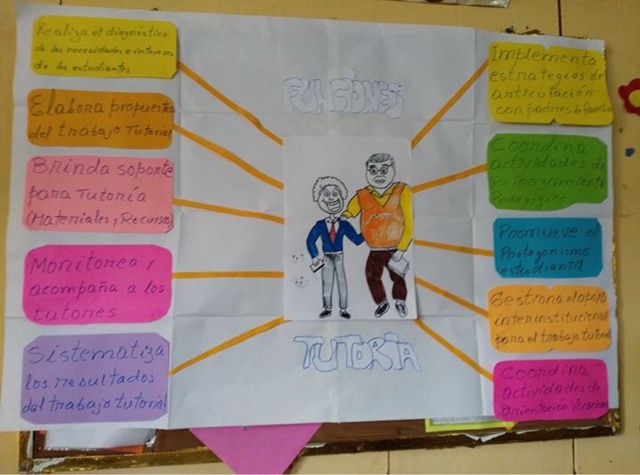 FUNCIONES
Realiza el diagnóstico
de las necesidades e intereses
de los estudiantes
Elabora propuesta
del trabajo Tutorial
Brinda soporte
para Tutoría
(Materiales y Recursos)
Monitorea y
acompaña a los
tutores
Sistematiza
los resultados
del trabajo tutorial
Implementa
estrategias de
articulación
con padres de familia
Coordina
actividades de
Reforzamiento
Pedagógico
Promueve el
Protagonismo
estudiantil
Gestiona el apoyo
interinstitucional
para el trabajo tutorial
Coordina
actividades de
orientación Vocacional
TUTORÍA